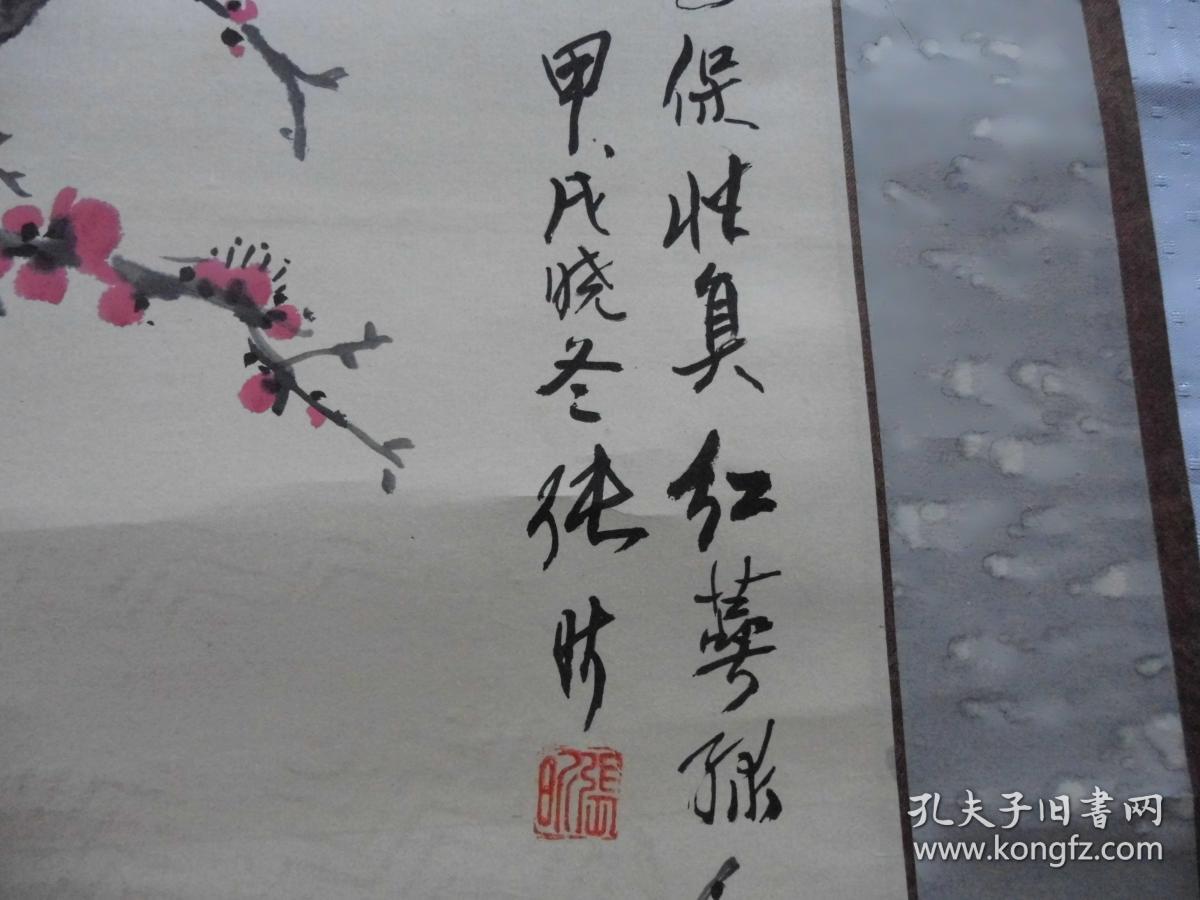 保性真红萼绿
甲戌晓冬张
孔夫子旧书网
www.kongfz.com